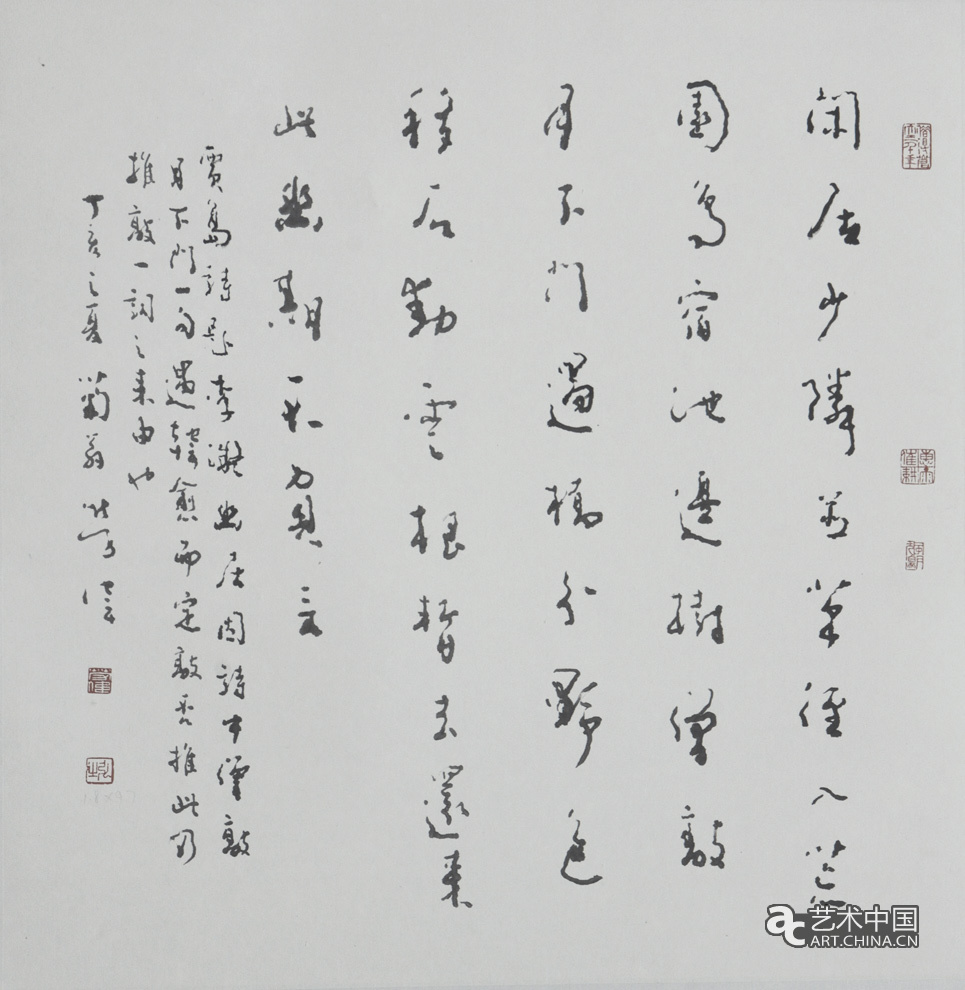 閑居少隣並草徑入荒
園鸟宿池邊樹僧敲
月下门過橋分野色
移石動雲根暫去還來
此幽期不負言
賈島詩題李凝幽居因詩中僧敲
月下門一句遇韓愈而定敲否推此乃
推敲一詞之来由也
丁亥之夏菊翁
艺术中国
ART.CHINA.CN